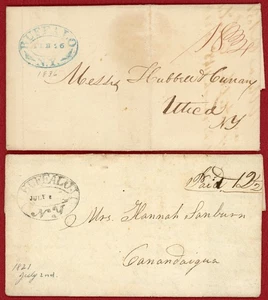 BUFFALO
FEB 16
N.Y.
18¾
1832
Messrs Hubbell & Curran
Utica
NY
BUFFALO
JULY 2
Paid 12½
Mrs. Hannah Sanburn
Canandaigua
1821
July 2nd.